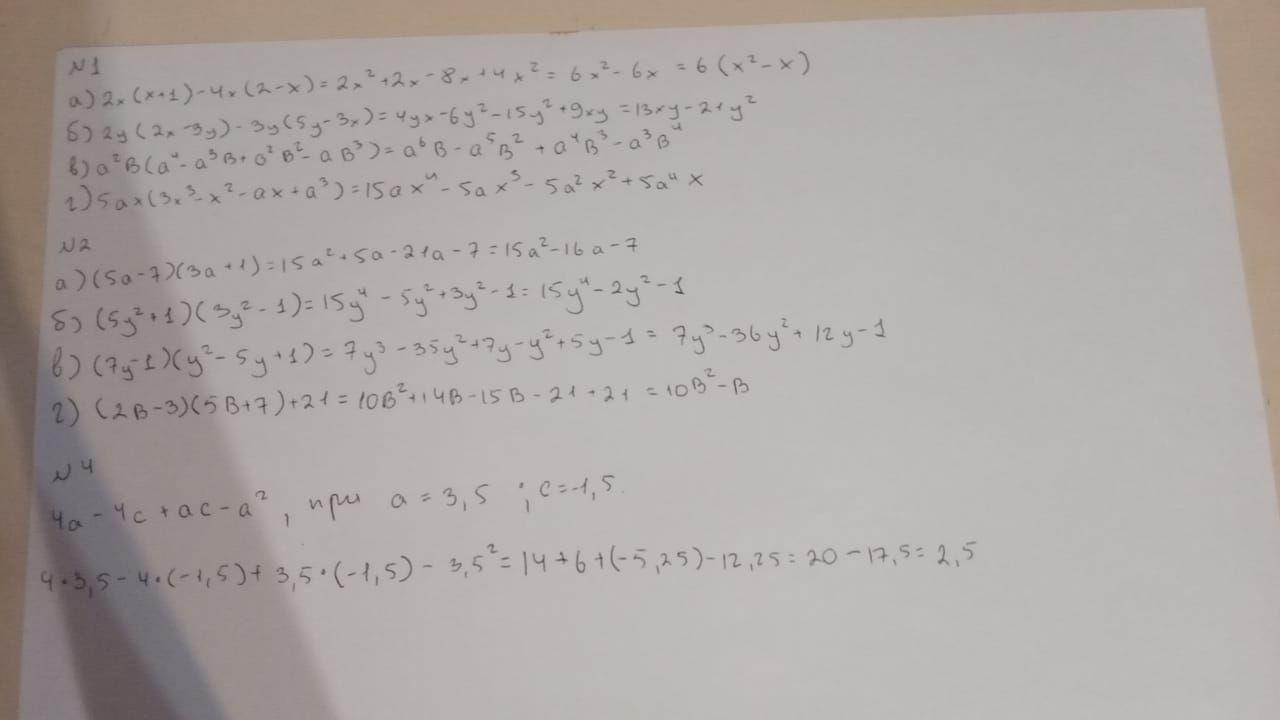 N1
а) 2x(x+1)-4x(2-x)=2x²+2x-8x+4x²=6x²-6x=6(x²-x)
б) 2y(2x-3y)-3y(5y-3x)=4yx-6y²-15y²+9xy=13xy-21y²
в) a²B(a⁴-a³B+a²B²-aB³)=a⁶B-a⁵B²+a⁴B³-a³B⁴
г) 5ax(3x³-x²-ax+a³)=15ax⁴-5ax³-5a²x²+5a⁴x
N2
а) (5a-7)(3a+1)=15a²+5a-21a-7=15a²-16a-7
б) (5y²+1)(3y²-1)=15y⁴-5y²+3y²-1=15y⁴-2y²-1
в) (7y-1)(y²-5y+1)=7y³-35y²+7y-y²+5y-1=7y³-36y²+12y-1
г) (2B-3)(5B+7)+21=10B²+14B-15B-21+21=10B²-B
N4
4a-4c+ac-a², при a=3,5; c=-1,5.
4·3,5-4·(-1,5)+3,5·(-1,5)-3,5²=14+6+(-5,25)-12,25=20-17,5=2,5